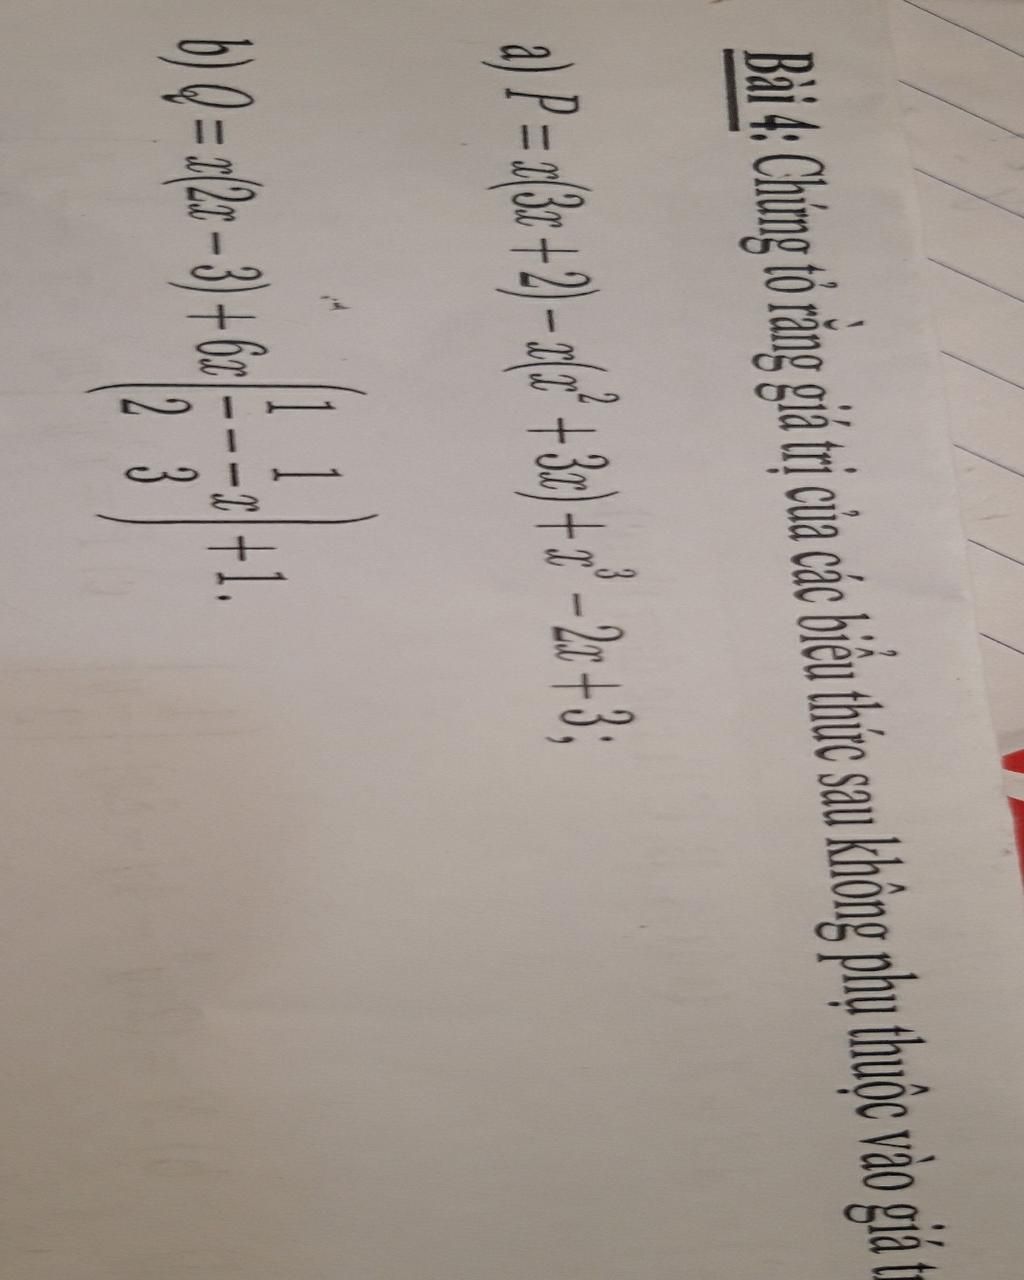 Bài 4: Chứng tỏ rằng giá trị của các biểu thức sau không phụ thuộc vào giá
a) P = x(3x + 2) − x(x² + 3x) + x³ − 2x + 3;
b) Q = x(2x − 3) + 6x(1/2 − 1/3 x) + 1.